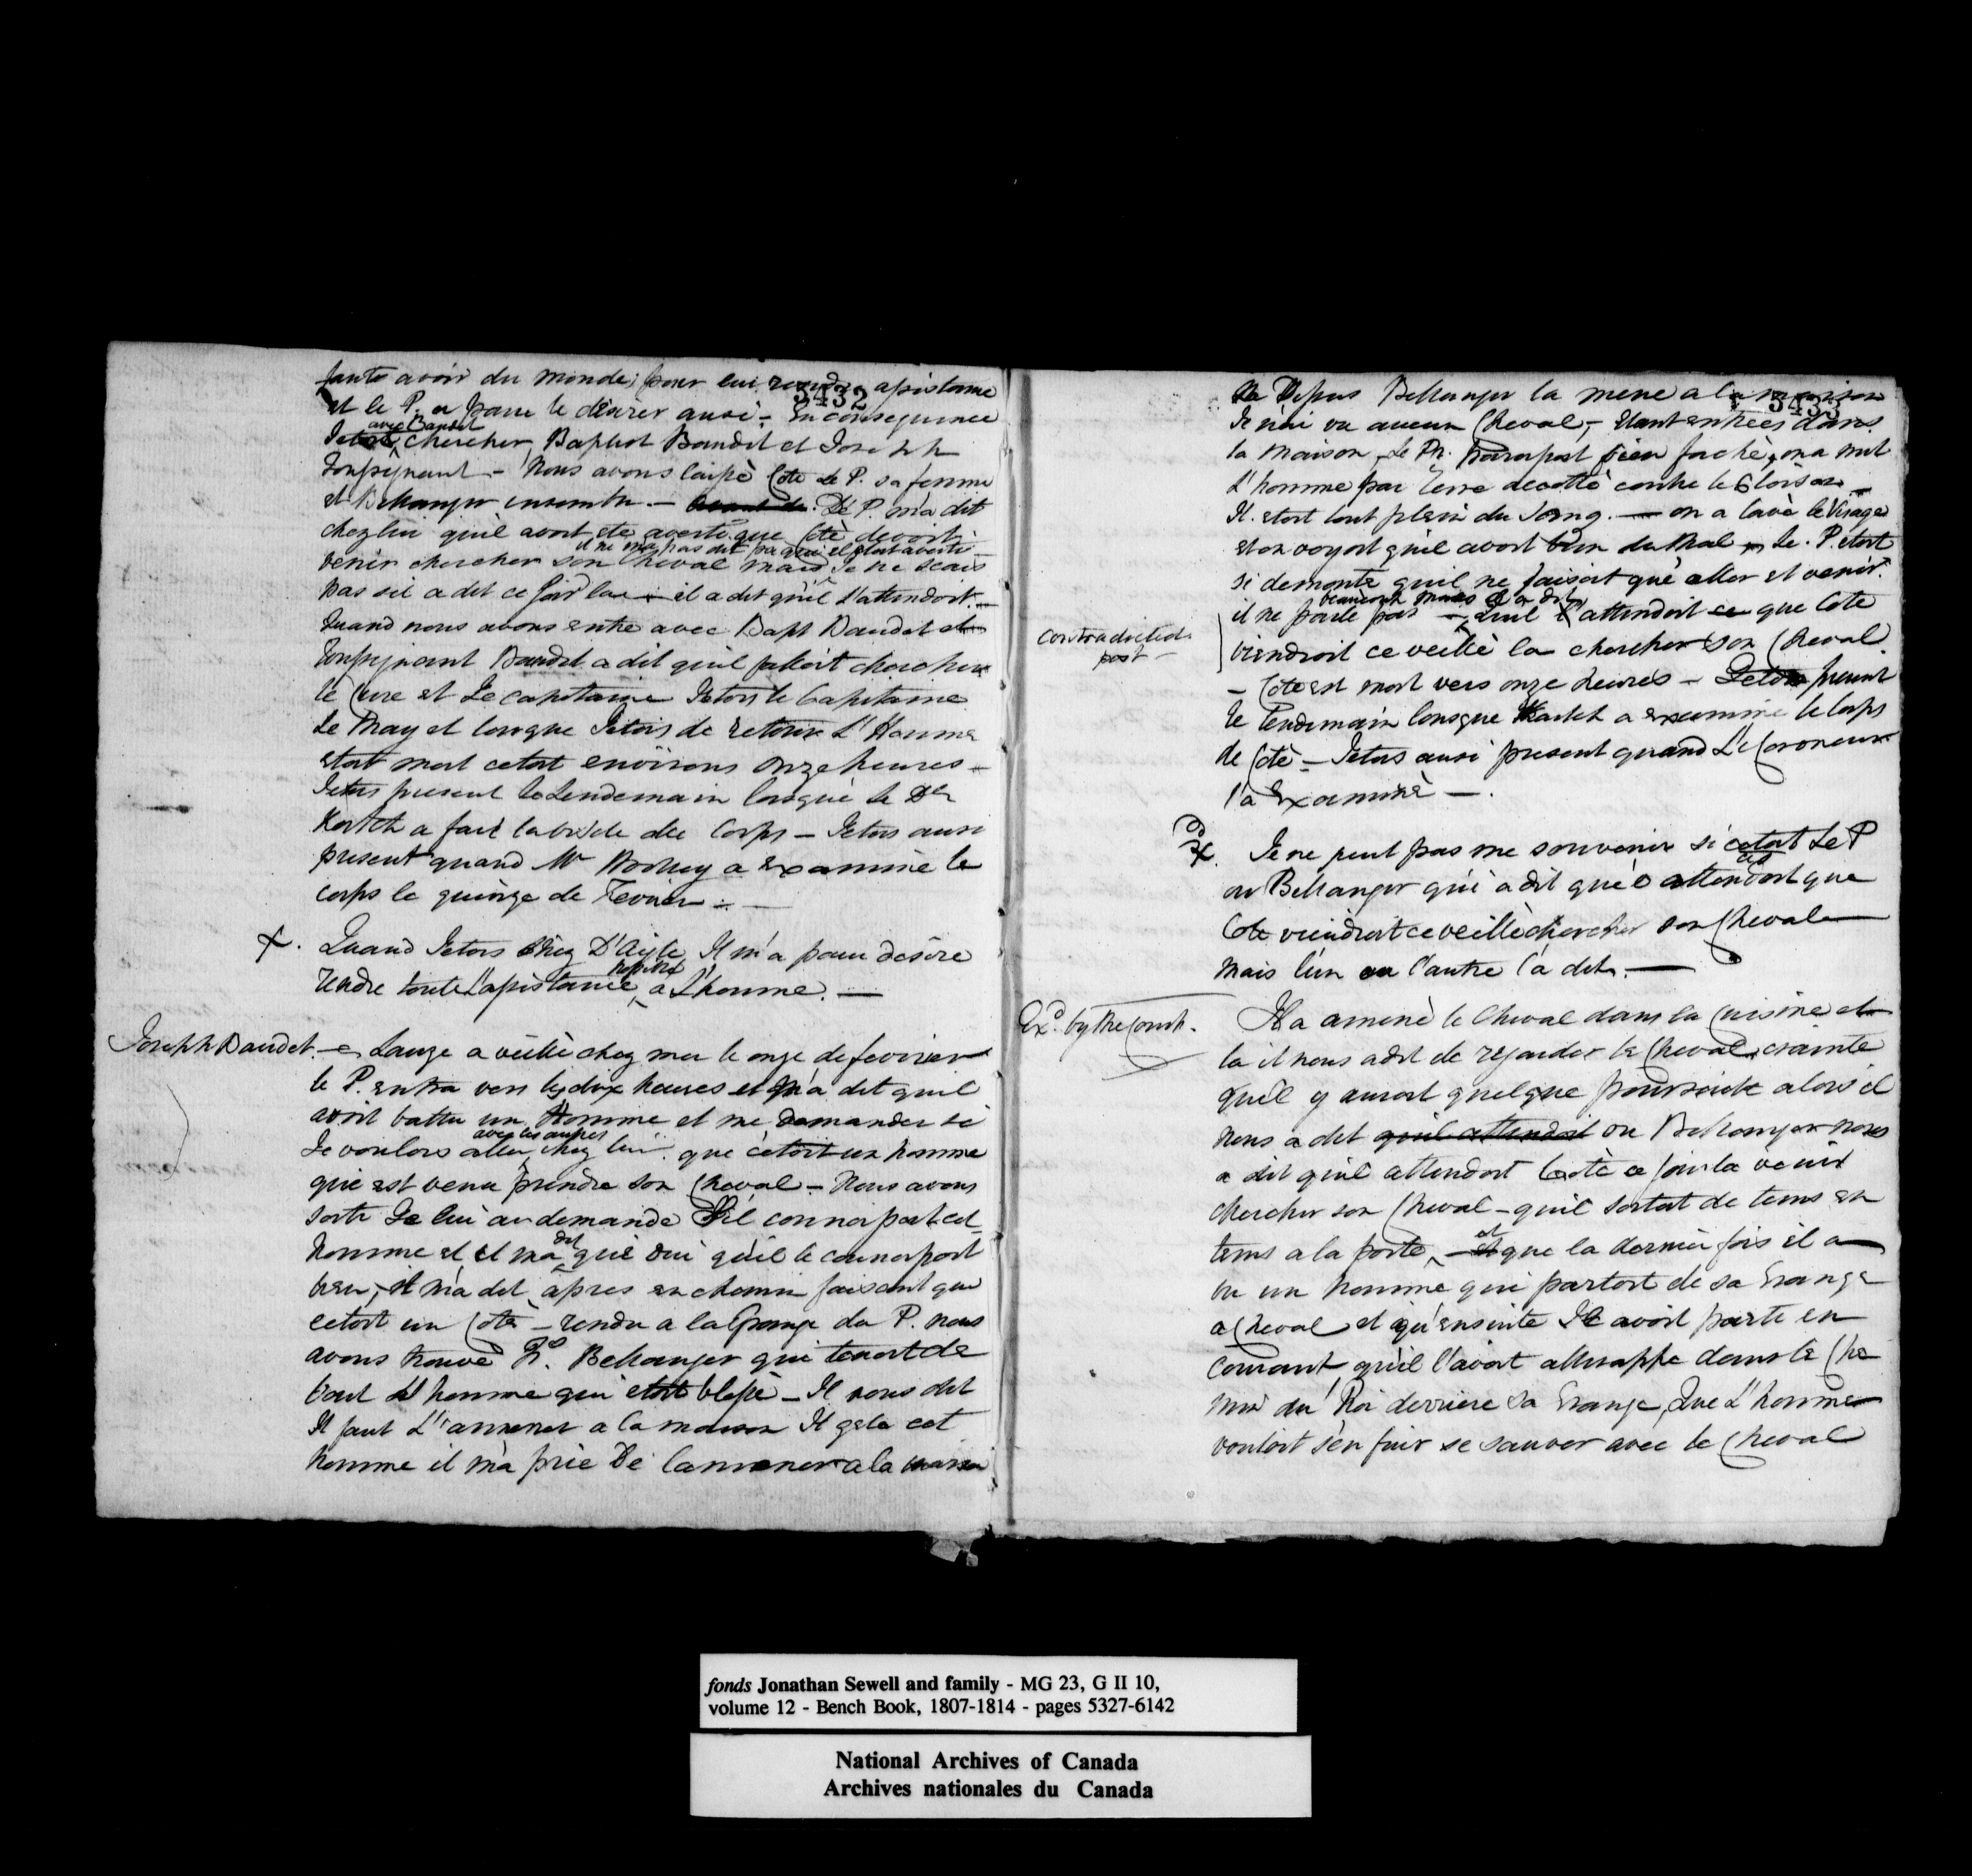 faute avoir du monde pour lui rendre assistance
5432
et le P. a parru le désirer aussi - En consequence
avec Baudet
Jetois chercher Baptist Baudet et Joseph
Tousignant - Nous avons laissé Coté Le P. sa femme
et Bellanger ensemble - Le P. m'a dit
chez lui quil avoit ete averti que Coté devoit
il ne m'a pas dit par qui il etoit averti
venir chercher son Cheval mais Je ne scais
pas sil a dit ce soir la - il a dit qu'il l'attendoit -
Quand nous avons entre avec Bapt Baudet et
Tousignant Baudet a dit quil falloit chercher
le Cure et Le capitaine Jetois le Capitaine
Le May et lorsque Jetois de retour L'Homme
etoit mort cetoit environs onze heures -
Jetois present le Lendemain lorsque le Dr
a fait des Corps - Jetois aussi
present quand Mr a Examiné le
corps le quinze de Fevrier -
X. Quand Jetois Chez D'Aigle Il m'a paru desire
rendre toute L'assistance a L'homme. -
Joseph Baudet. - Lange a veillé chez moi le onze de fevrier
le P. entra vers les dix heures et m'a dit quil
avoit battu un Homme et me demander si
avec les autres
Je voulois aller chez lui que c'etoit un homme
qui est venu prendre son Cheval - Nous avons
sorti Je lui ai demande S'il connoissoit cet
dit
homme et il m'a que oui qu'il le connoissoit
bien, il m'a dit apres en chemin faisant que
cetoit un Coté - rendu a la Grange du P. nous
avons trouvé Bellanger qui tenoit de
bout L'homme qui etoit blessé - Il nous dit
Il faut L'amener a la maison Il gele cet
homme il m'a prié De lamener a la maison
5433
Bellanger la mene a la maison
Je n'ai vu aucun Cheval, - Etant entrées dans
la maison, Le Pr. paroissoit bien faché, on a mit
L'homme par terre contre le Cloison -
Il etoit tout plein du sang. - on a lavé le Visage
et on voyoit qu'il avoit bien du Mal - Le P. etoit
si demonté quil ne faisoit que aller et venir.
beaucoup mais il a dit
il ne parle pas - quil l'attendoit ce que Coté
contradicted
post -
viendroit ce veillé la chercher son Cheval.
- Coté est mort vers onze heures - Jetois present
le lendemain lorsque a examiné le Corps
de Coté - Jetois aussi present quand Le Coroneur
l'a Examiné -.
X. Je ne peut pas me souvenir si cetoit Le P
ou Bellanger qui a dit que attendoit que
Coté viendroit ce veillé chercher son Cheval
mais l'un ou l'autre l'a dit. -
Exd. by the Court. Il a amené le Cheval dans la Cuisine et
la il nous a dit de regarder le Cheval, crainte
qu'il y auroit quelque poursuite alors il
nous a dit quil attendoit ou Bellanger nous
a dit qu'il attendoit Coté ce soir la venir
chercher son Cheval - quil sortoit de tems en
et
tems a la porte, - que la derniere fois il a
vu un homme qui partoit de sa Grange
a Cheval et qu'ensuite Il avoit parti en
courant qu'il l'avoit attrappe dans le Che
min du Roi derriere sa Grange, Que L'homme
vouloit s'en fuir se sauver avec le Cheval
fonds Jonathan Sewell and family - MG 23, G II 10,
volume 12 - Bench Book, 1807-1814 - pages 5327-6142
National Archives of Canada
Archives nationales du Canada